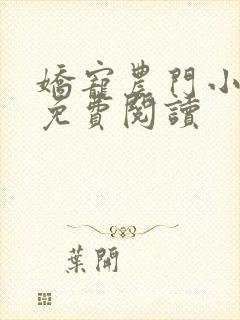 嬌寵農門小
免費閱讀
葉開